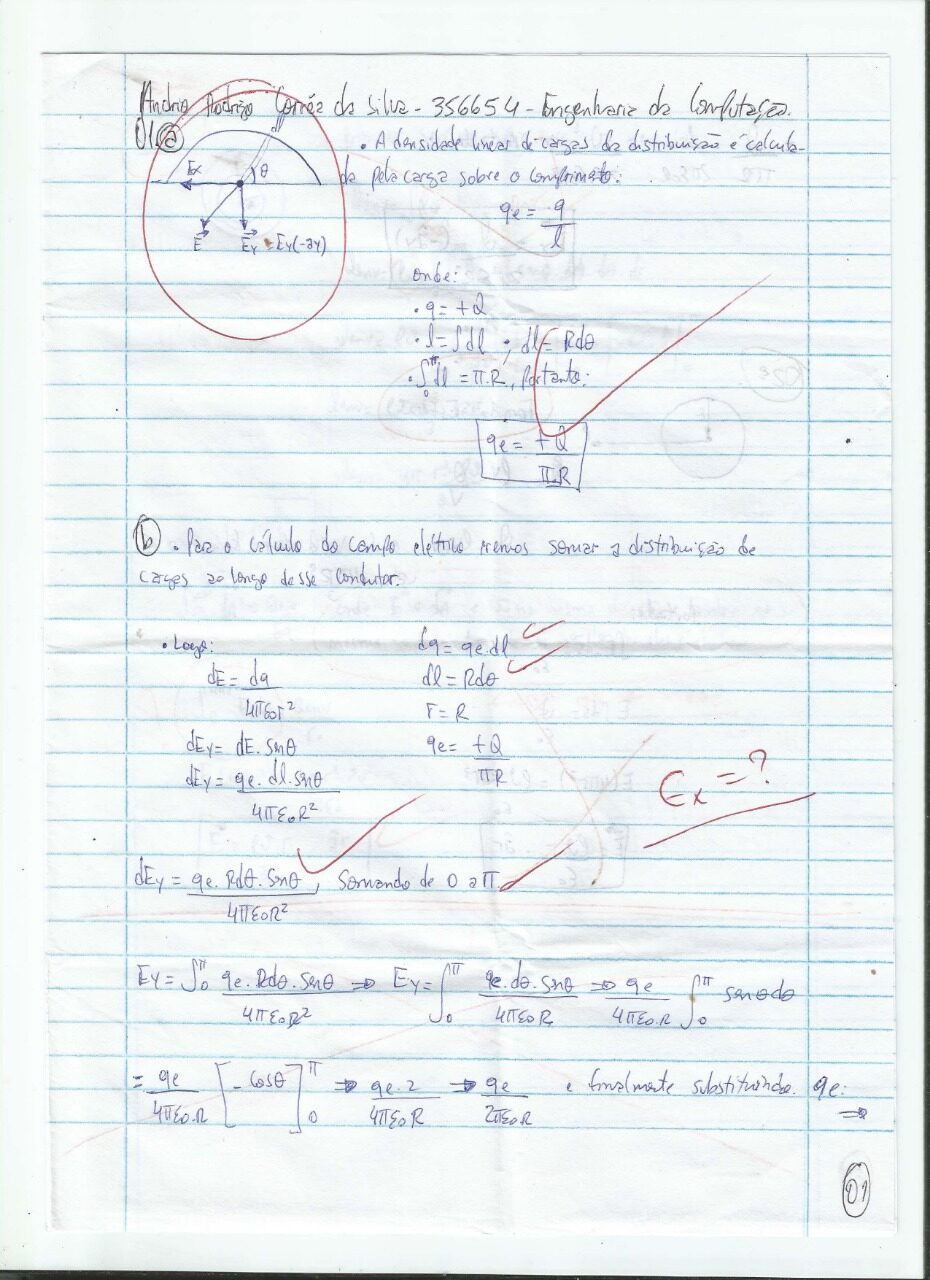 Andrio Rodrigo Corrêa da Silva - 356654 - Engenharia da Computação.
01 a
dl
Ex θ
E Ey = Ey(-ay)
• A densidade linear de cargas da distribuição é calcula-
da pela carga sobre o comprimento:
qe = q/l
onde:
• q = +Q
• l = ∫dl ; dl = Rdθ
• ∫₀^π dl = π.R, portanto:
qe = +Q/π.R
b • Para o cálculo do campo elétrico iremos somar a distribuição de
cargas ao longo desse condutor.
• Logo: dq = qe.dl
dE = dq/4πε₀r² dl = Rdθ
r = R
dEy = dE.senθ qe = +Q/πR
dEy = qe.dl.senθ/4πε₀R²
Ex = ?
dEy = qe.Rdθ.senθ/4πε₀R², Somando de 0 a π.
Ey = ∫₀^π qe.Rdθ.senθ/4πε₀R² ⇒ Ey = ∫₀^π qe.dθ.senθ/4πε₀R ⇒ qe/4πε₀.R ∫₀^π senθdθ
= qe/4πε₀.R [-cosθ]₀^π ⇒ qe.2/4πε₀R ⇒ qe/2πε₀R e finalmente substituindo qe:
⇒
01